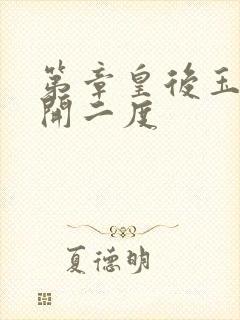 第章皇後玉
開二度
夏德明